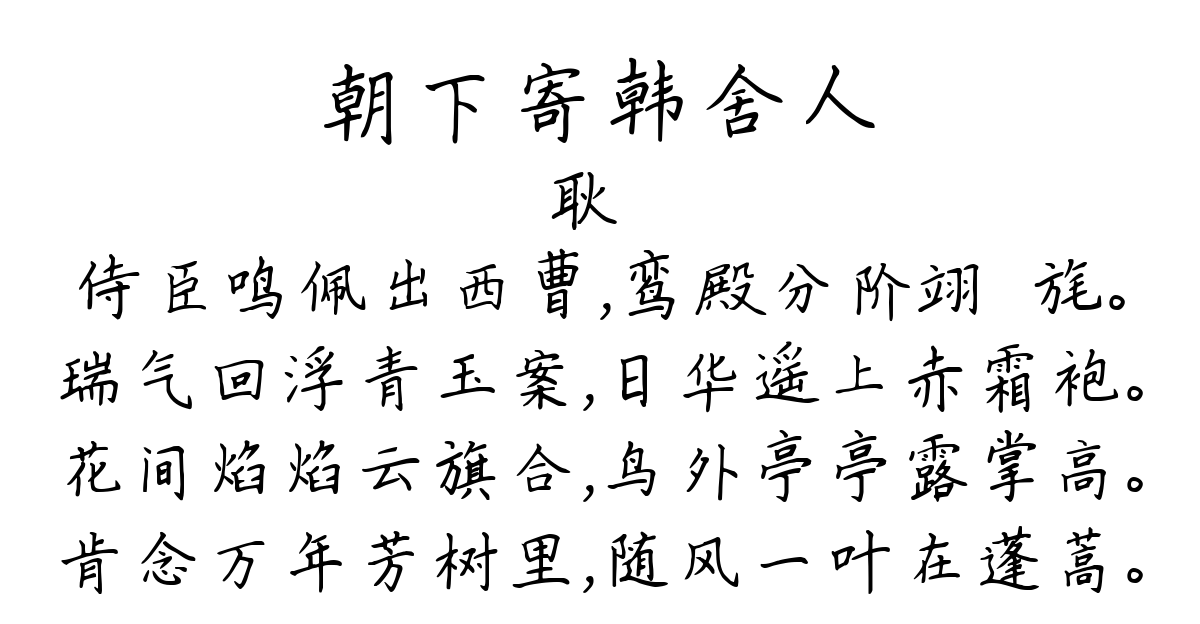 朝下寄韩舍人
耿
侍臣鸣佩出西曹,鸾殿分阶翊 旄。
瑞气回浮青玉案,日华遥上赤霜袍。
花间焰焰云旗合,鸟外亭亭露掌高。
肯念万年芳树里,随风一叶在蓬蒿。